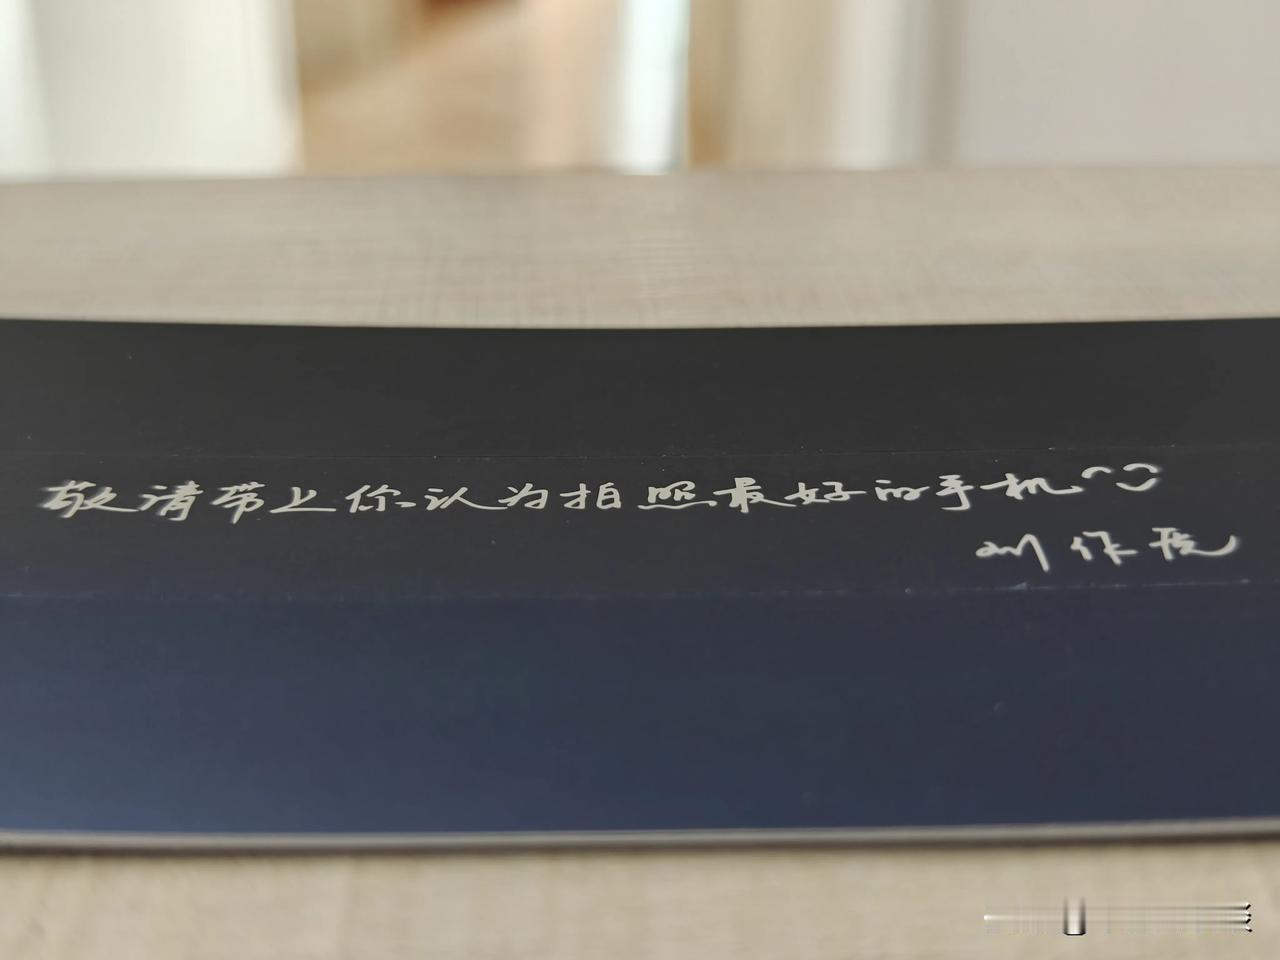 敬请带上你认为拍照最好的手机
刘作虎